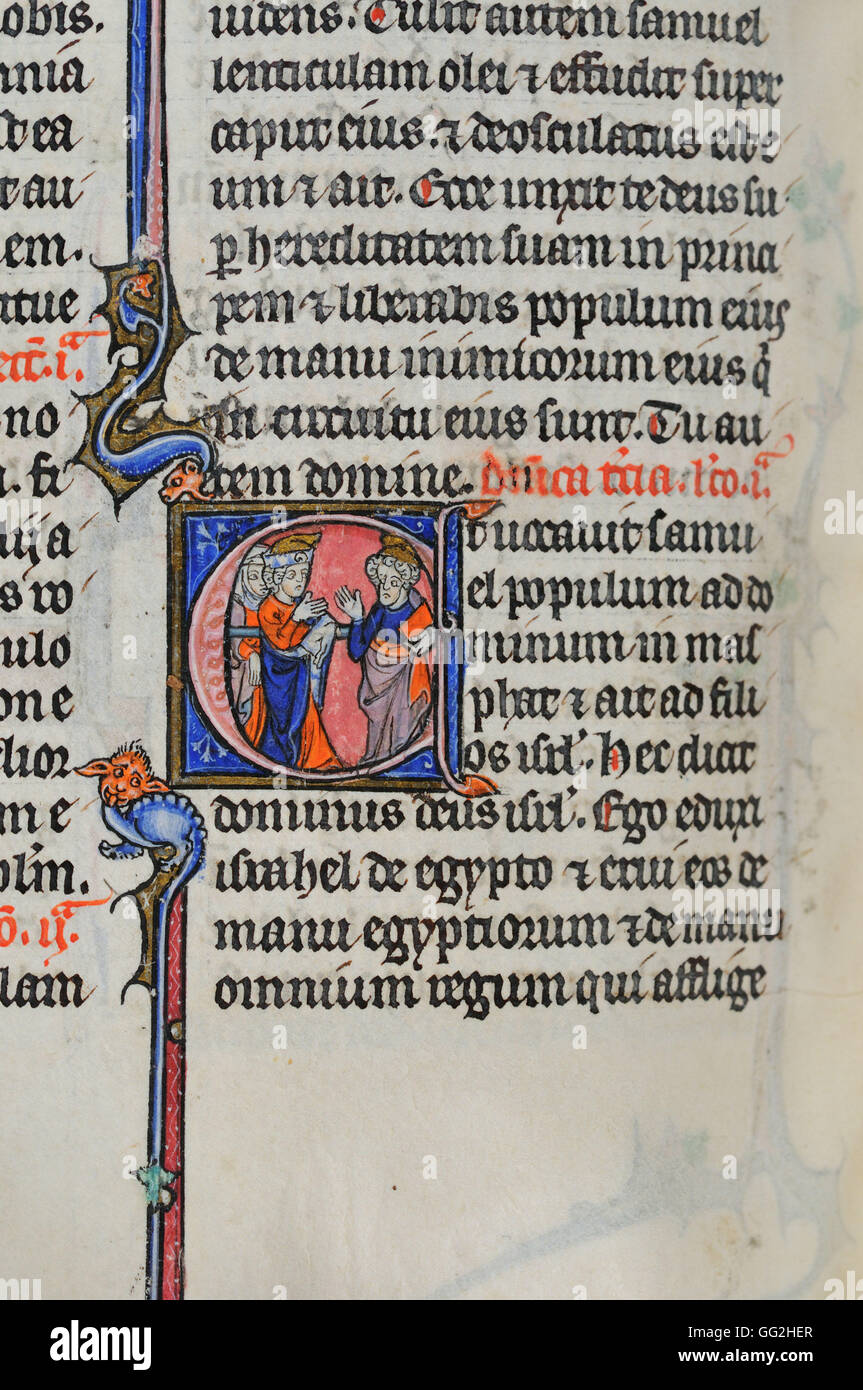 obis.
nnia
ea
au
em.
no
. fi
s uo
ulo
one
lior
m e
lm.
lam
uidens. Tulit autem samuel
lenticulam olei ⁊ effudit super
caput eius. ⁊ deosculatus est e
um ⁊ ait. Ecce unxit te deus su
p hereditatem suam in princi
pem ⁊ liberabis populum eius
de manu inimicorum eius
circuitu eius sunt. Tu au
tem domine. Dnica tcia. lco. ia.
Et uocauit samu
el populum ad do
minum in mas
phat ⁊ ait ad fili
os isrl. Hec dicit
dominus deus isrl. Ego eduxi
israhel de egypto ⁊ erui eos de
manu egyptiorum ⁊ de manu
omnium regum qui afflige
alamy
Image ID: GG2HER
www.alamy.com